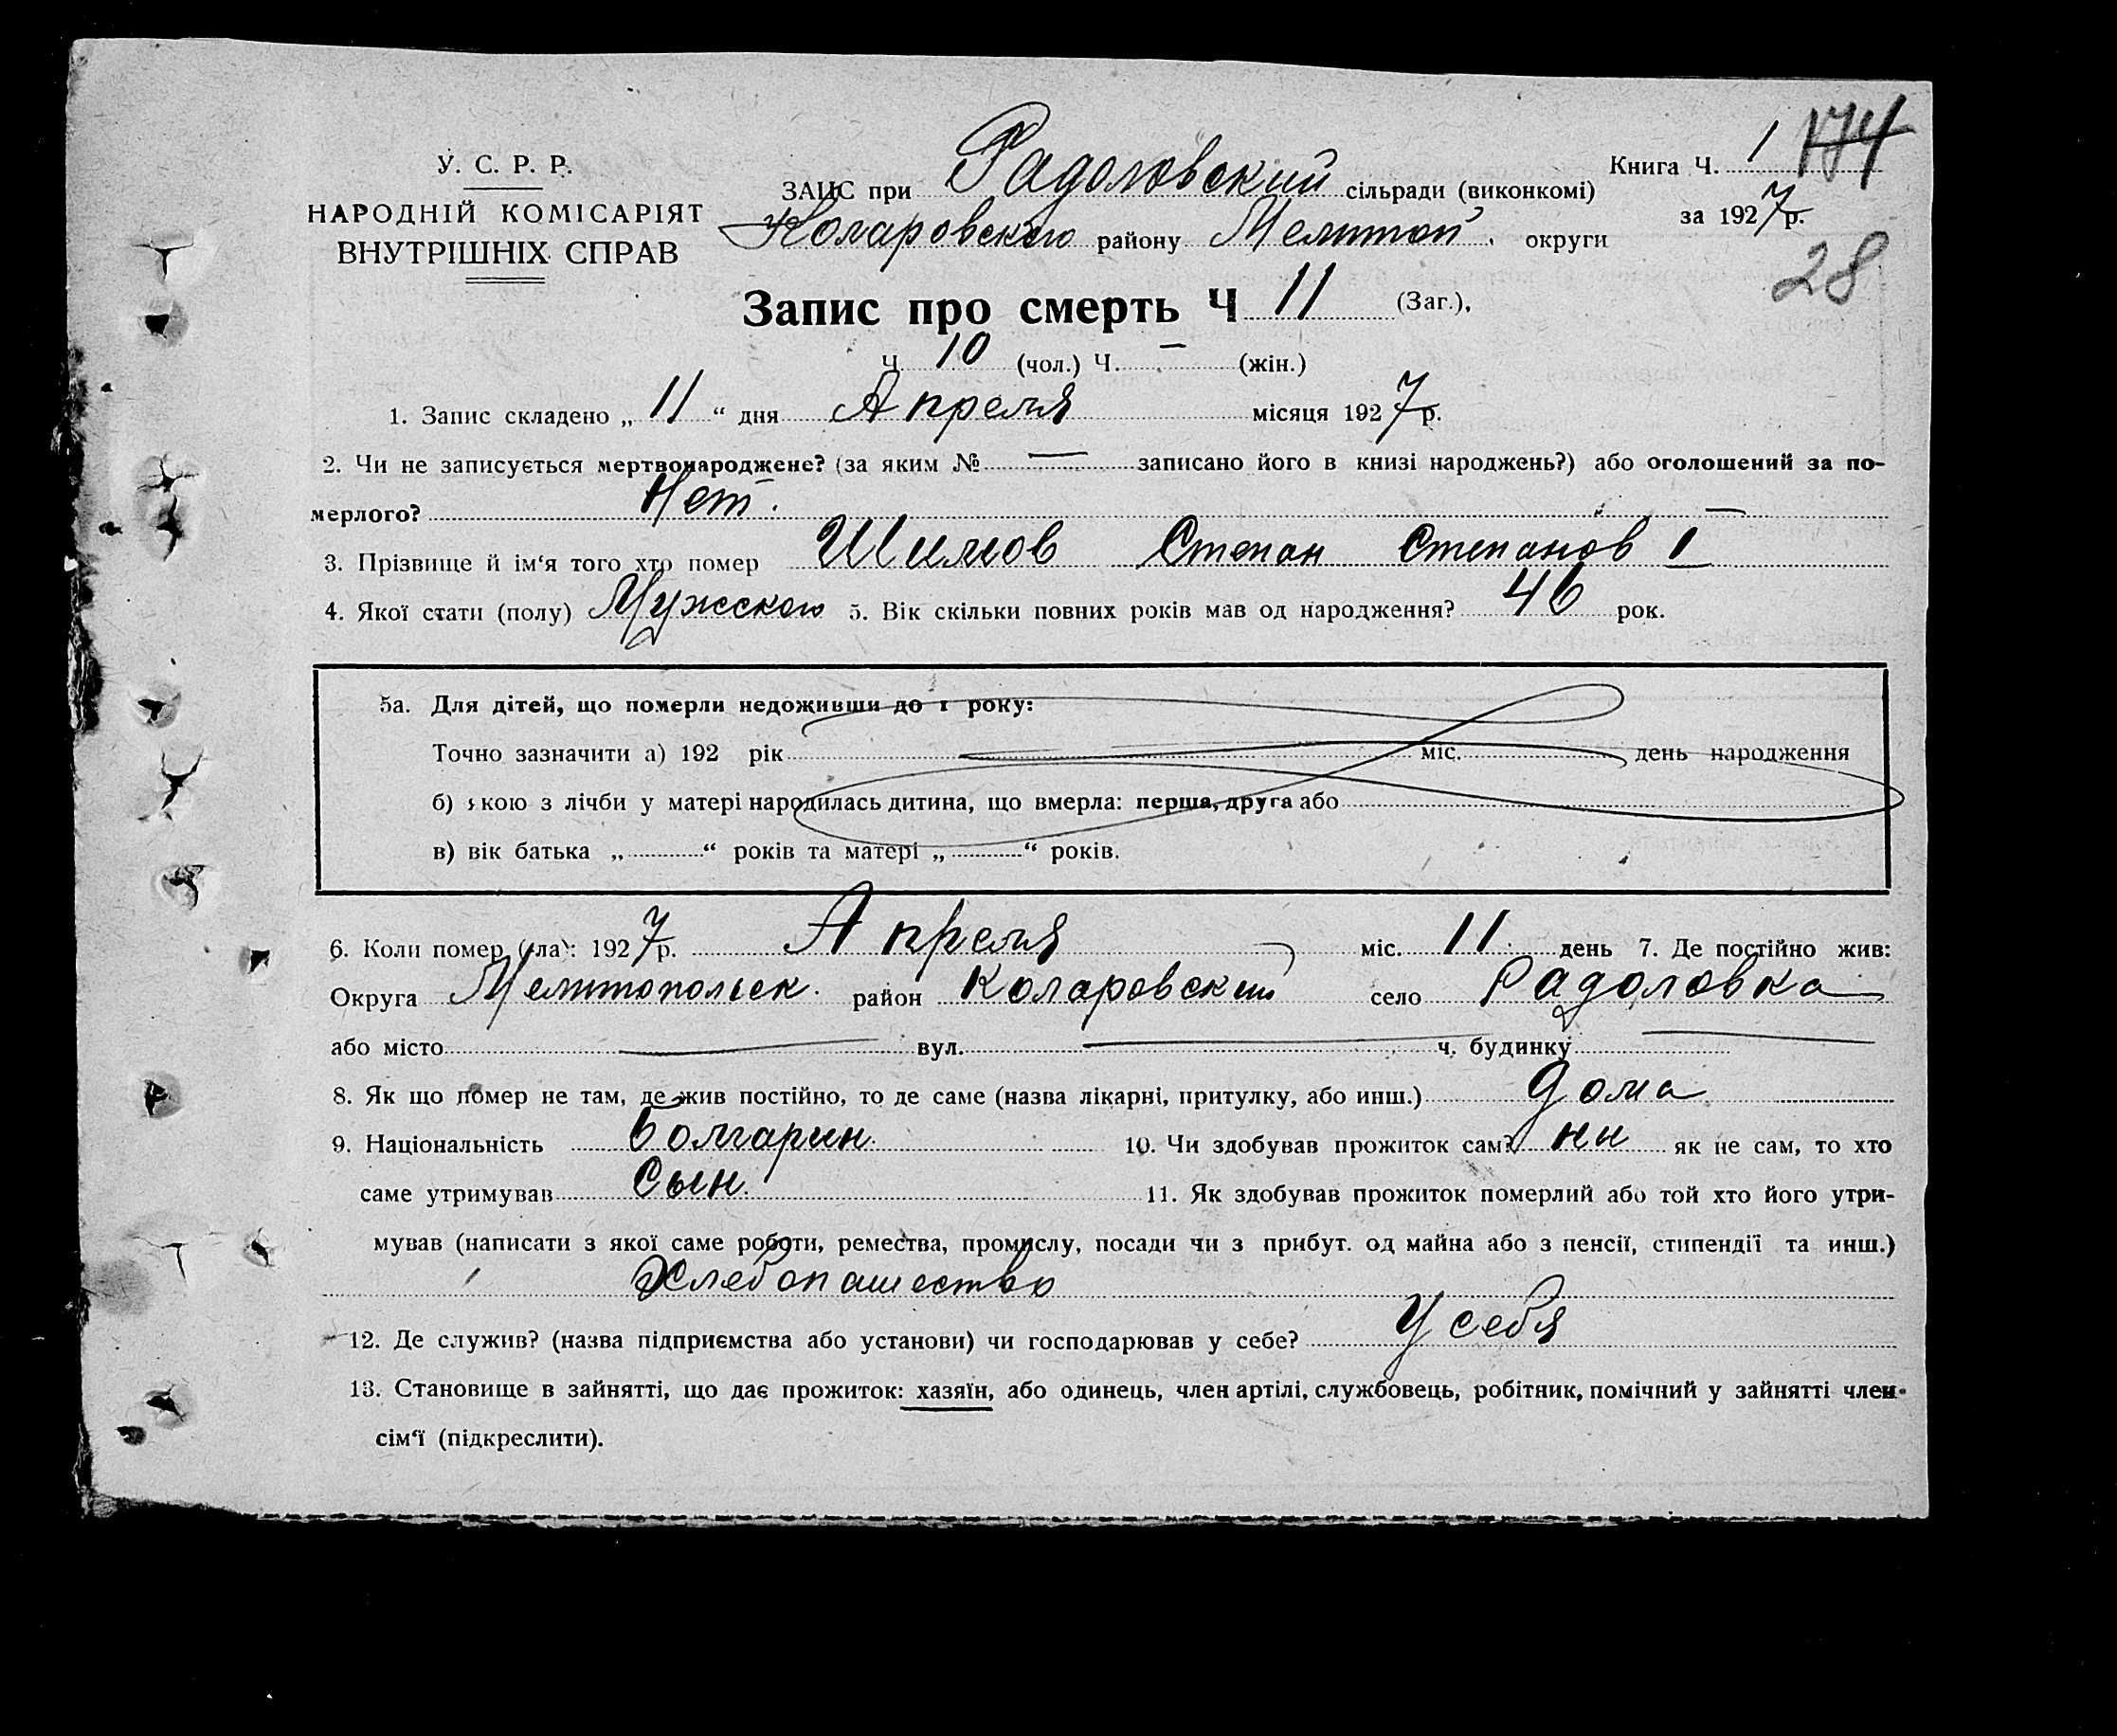 У. С. Р. Р.
НАРОДНІЙ КОМІСАРІЯТ
ВНУТРІШНІХ СПРАВ
Книга Ч. 1 174
ЗАЦС при Радоловский сільради (виконкомі)
за 1927 р.
Коларовского району Мелитоп. округи
28
Запис про смерть Ч 11 (Заг.),
Ч. 10 (чол.) Ч. — (жін.)
1. Запис складено „ 11 “ дня Апреля місяця 1927 р.
2. Чи не записується мертвонароджене? (за яким № — записано його в книзі народжень?) або оголошений за по-
мерлого? Нет.
3. Прізвище й ім‘я того хто помер Шилов Степан Степанов I
4. Якої стати (полу) Мужского 5. Вік скільки повних років мав од народження? 46 рок.
5а. Для дітей, що померли недоживши до 1 року:
Точно зазначити а) 192 рік міс. день народження
б) якою з лічби у матері народилась дитина, що вмерла: перша, друга або
в) вік батька „ “ років та матері „ “ років.
6. Коли помер (ла): 1927 р. Апреля міс. 11 день 7. Де постійно жив:
Округа Мелитопольск. район Коларовский село Радоловка
або місто — вул. — ч. будинку —
8. Як що помер не там, де жив постійно, то де саме (назва лікарні, притулку, або инш.) дома
9. Національність Болгарин. 10. Чи здобував прожиток сам? ни як не сам, то хто
саме утримував Сын. 11. Як здобував прожиток померлий або той хто його утри-
мував (написати з якої саме роботи, ремества, промислу, посади чи з прибут. од майна або з пенсії, стипендії та инш.)
Хлебопашество
12. Де служив? (назва підприємства або установи) чи господарював у себе? У себя
13. Становище в зайнятті, що дає прожиток: хазяїн, або одинець, член артілі, службовець, робітник, помічний у зайнятті член
сім‘ї (підкреслити).